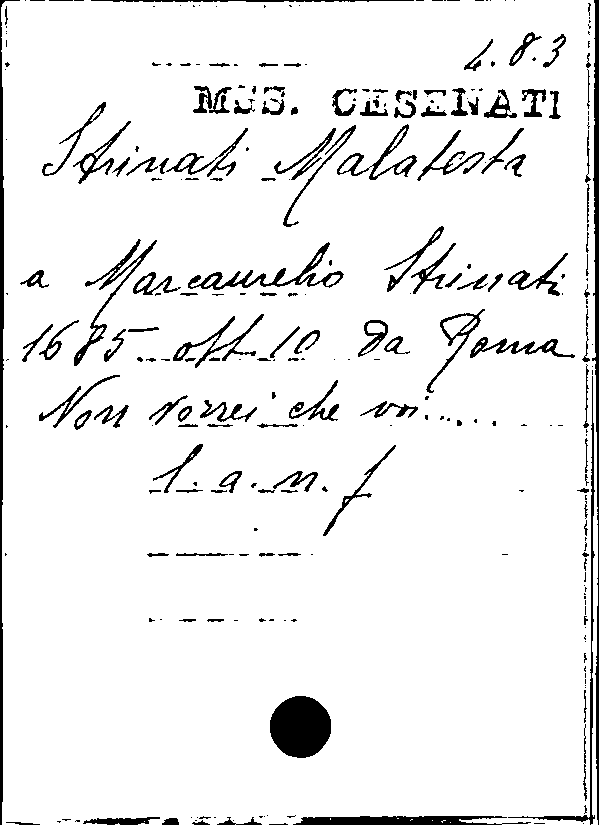 4.8.3
MSS. CESENATI
Strinati Malatesta
a Marcaurelio Strinati
1685 ott 10 da Roma
Non vorrei che voi.....
l. a. n. f